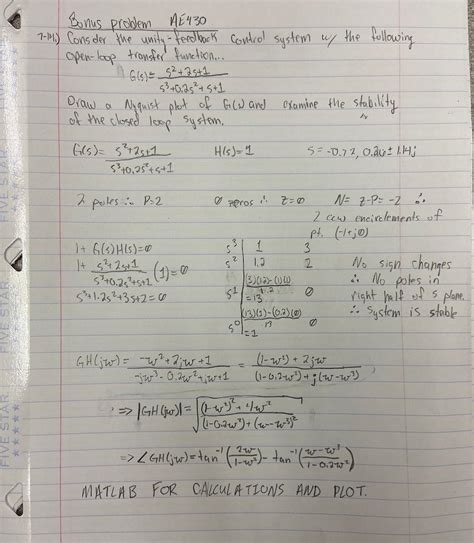 Bonus problem AE430
7-14) Consider the unity-feedback control system w/ the following
open-loop transfer function...
G(s) = s²+2s+1 / s³+0.2s²+s+1
Draw a Nyquist plot of G(s) and examine the stability
of the closed loop system.
G(s) = s²+2s+1 / s³+0.2s²+s+1 H(s)=1 s=-0.72, 0.26±1.14j
2 poles ∴ P=2 0 zeros ∴ Z=0 N= Z-P= -2 ∴
2 ccw encirclements of
pt. (-1+j0)
1+G(s)H(s)=0
1+ s²+2s+1 / s³+0.2s²+s+1 (1)=0
s³+1.2s²+3s+2=0
s³ 1 3
s² 1.2 2
s¹ (3)(1.2)-(1)(1) / 1.2 =13 0
s⁰ (13)(1)-(0.2)(0) =1 0
No sign changes
∴ No poles in
right half of s plane
∴ System is stable
GH(jw) = -w²+2jw+1 / -jw³-0.2w²+jw+1 = (1-w²)+2jw / (1-0.2w²)+j(w-w³)
⇒ |GH(jw)| = √((1-w²)²+4w² / (1-0.2w²)+(w-w³)²)
⇒ ∠GH(jw) = tan⁻¹(2w / 1-w²) - tan⁻¹(w-w³ / 1-0.2w²)
MATLAB FOR CALCULATIONS AND PLOT.
FIVE STAR
FIVE STAR
FIVE STAR